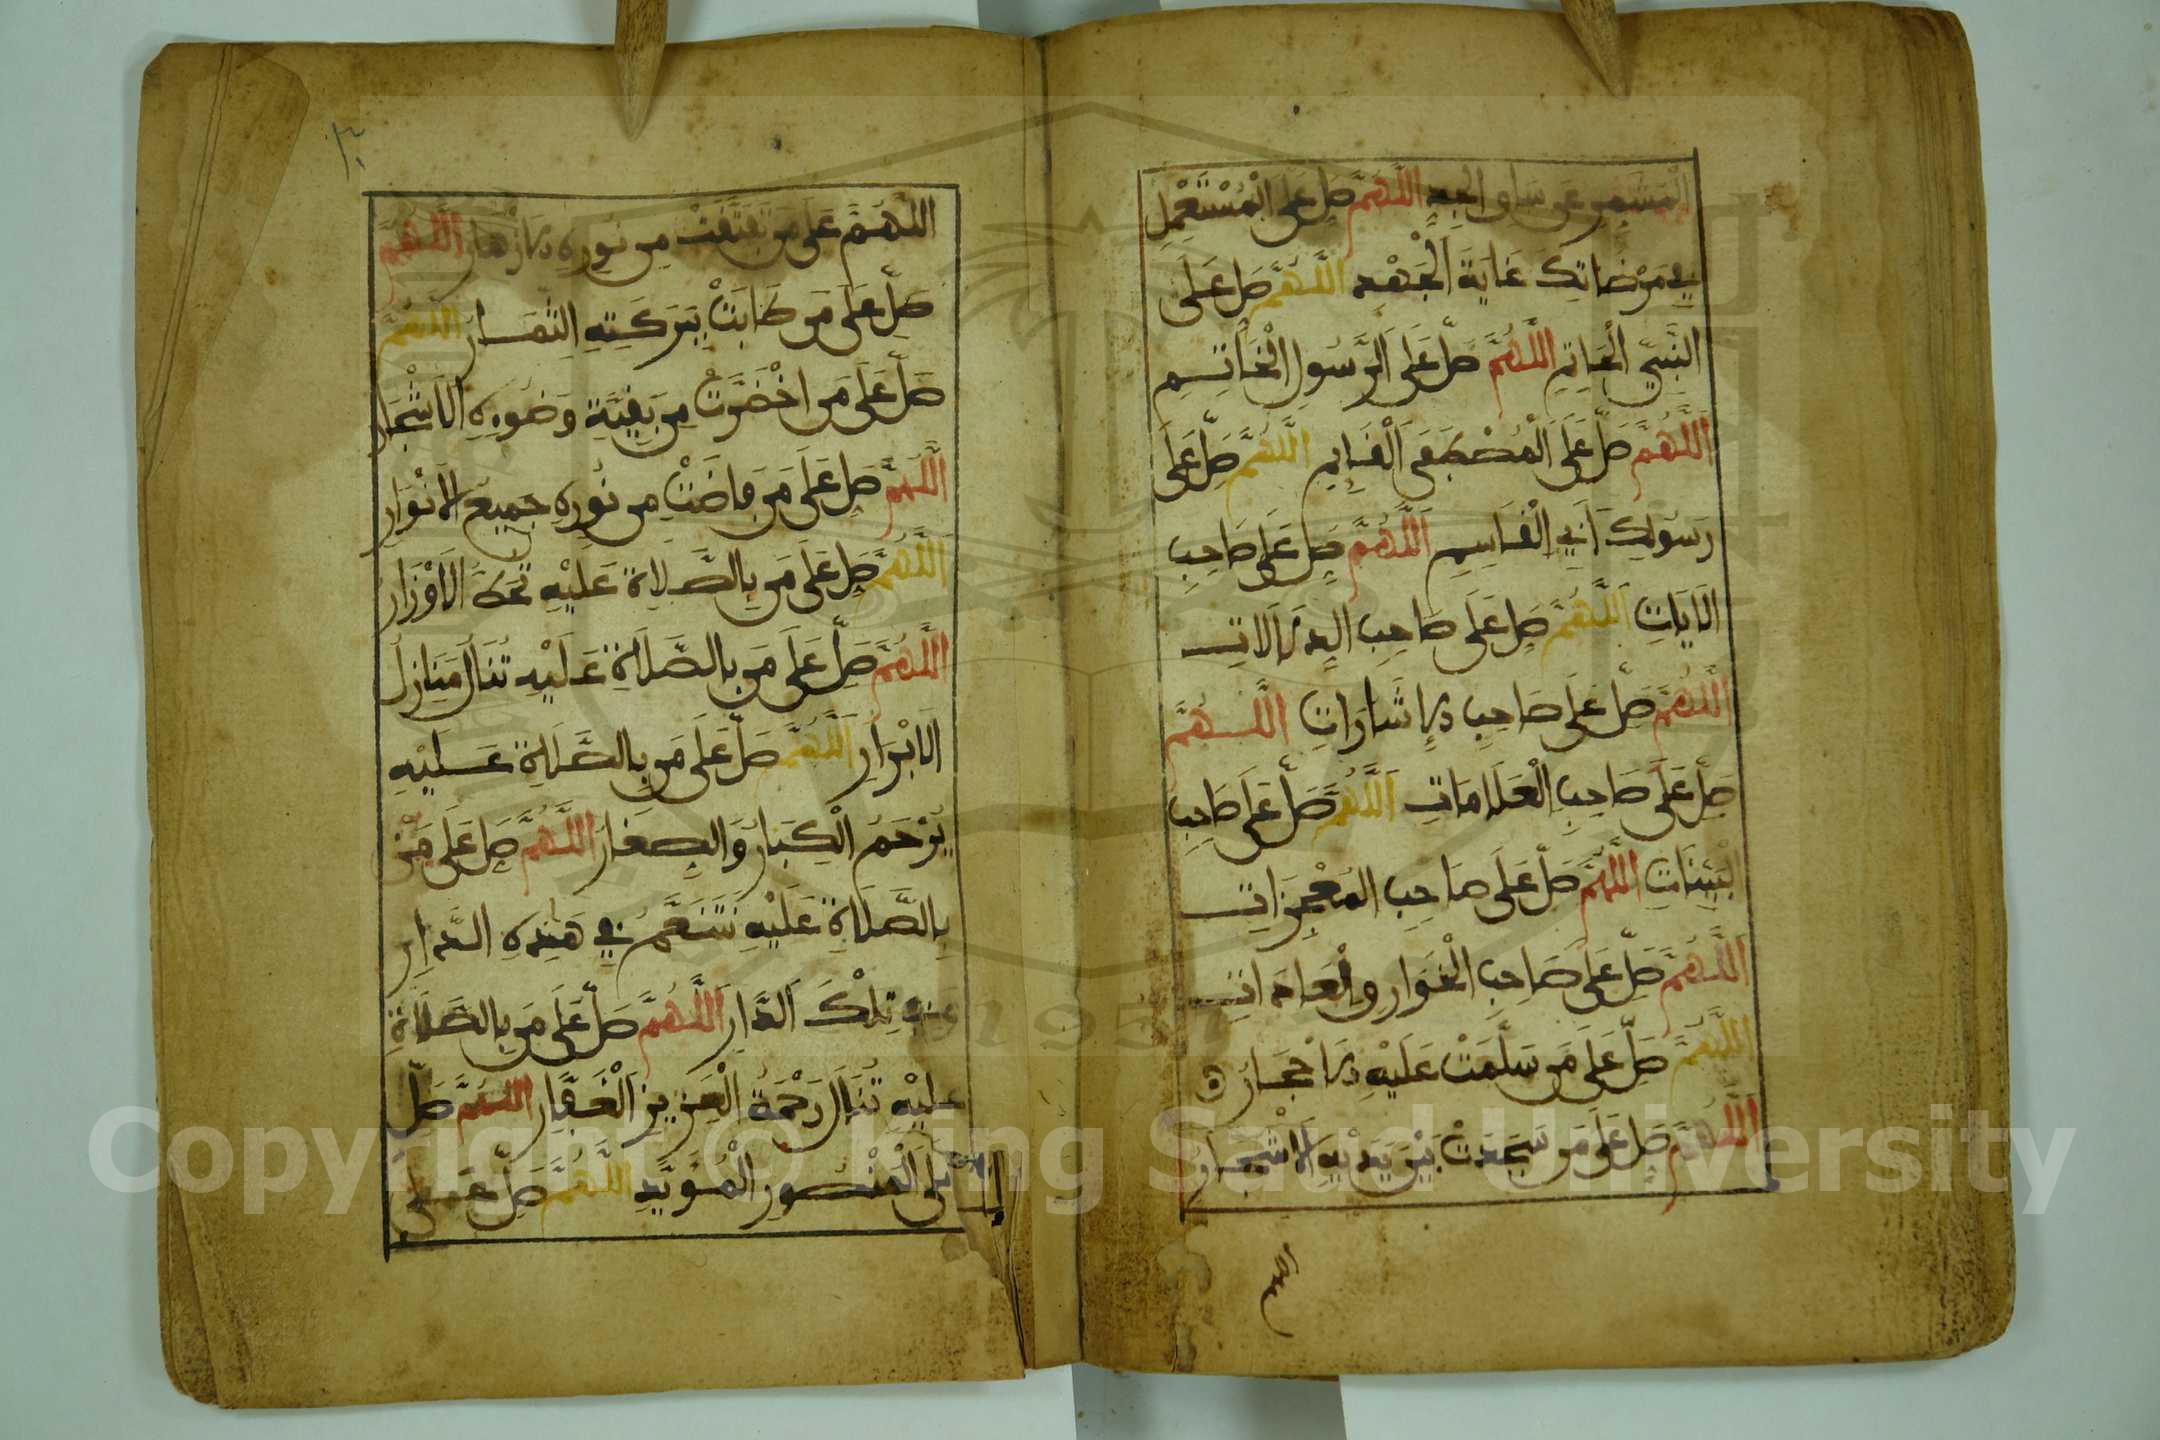 المشمر عن ساق الجد اللَّهُمَّ صَلِّ عَلَى الْمُسْتَعْمِلِ
في مَرْضَاتِكَ غَايَةَ الْجَهْدِ اللَّهُمَّ صَلِّ عَلَى
النَّبِيِّ الْخَاتِمِ اللَّهُمَّ صَلِّ عَلَى الرَّسُولِ الْخَاتِمِ
اللَّهُمَّ صَلِّ عَلَى الْمُصْطَفَى الْقَائِمِ اللَّهُمَّ صَلِّ عَلَى
رَسُولِكَ أَبِي الْقَاسِمِ اللَّهُمَّ صَلِّ عَلَى صَاحِبِ
الْآيَاتِ اللَّهُمَّ صَلِّ عَلَى صَاحِبِ الدِّلَالَاتِ
اللَّهُمَّ صَلِّ عَلَى صَاحِبِ الْإِشَارَاتِ اللَّهُمَّ
صَلِّ عَلَى صَاحِبِ الْعَلَامَاتِ اللَّهُمَّ صَلِّ عَلَى صَاحِبِ
الْبَيِّنَاتِ اللَّهُمَّ صَلِّ عَلَى صَاحِبِ الْمُعْجِزَاتِ
اللَّهُمَّ صَلِّ عَلَى صَاحِبِ الْخَوَارِقِ الْعَادَاتِ
اللَّهُمَّ صَلِّ عَلَى مَن سَلَّمَتْ عَلَيْهِ الْأَحْجَارُ
اللَّهُمَّ صَلِّ عَلَى مَن سَجَدَتْ بَيْنَ يَدَيْهِ الْأَشْجَارُ
اللهم
٣١
اللَّهُمَّ عَلَى مَن تَفَتَّقَتْ مِن نُورِهِ الْأَزْهَارُ اللَّهُمَّ
صَلِّ عَلَى مَن طَابَتْ بِبَرَكَتِهِ الثِّمَارُ اللَّهُمَّ
صَلِّ عَلَى مَنِ اخْضَرَّتْ مِن بَقِيَّةِ وَضُوئِهِ الْأَشْجَارُ
اللَّهُمَّ صَلِّ عَلَى مَن فَاضَتْ مِن نُورِهِ جَمِيعُ الْأَنْوَارِ
اللَّهُمَّ صَلِّ عَلَى مَن بِالصَّلَاةِ عَلَيْهِ تُحَطُّ الْأَوْزَارُ
اللَّهُمَّ صَلِّ عَلَى مَن بِالصَّلَاةِ عَلَيْهِ تُنَالُ مَنَازِلُ
الْأَبْرَارِ اللَّهُمَّ صَلِّ عَلَى مَن بِالصَّلَاةِ عَلَيْهِ
يُرْحَمُ الْكِبَارُ وَالصِّغَارُ اللَّهُمَّ صَلِّ عَلَى مَنْ
بِالصَّلَاةِ عَلَيْهِ نَتَنَعَّمُ فِي هَذِهِ الدَّارِ
وفي تِلْكَ الدَّارِ اللَّهُمَّ صَلِّ عَلَى مَن بِالصَّلَاةِ
عَلَيْهِ تُنَالُ رَحْمَةُ الْعَزِيزِ الْغَفَّارِ اللَّهُمَّ صَلِّ
عَلَى الْمَنْصُورِ الْمُؤَيَّدِ اللَّهُمَّ صَلِّ عَلَى
1957
Copyright © King Saud University